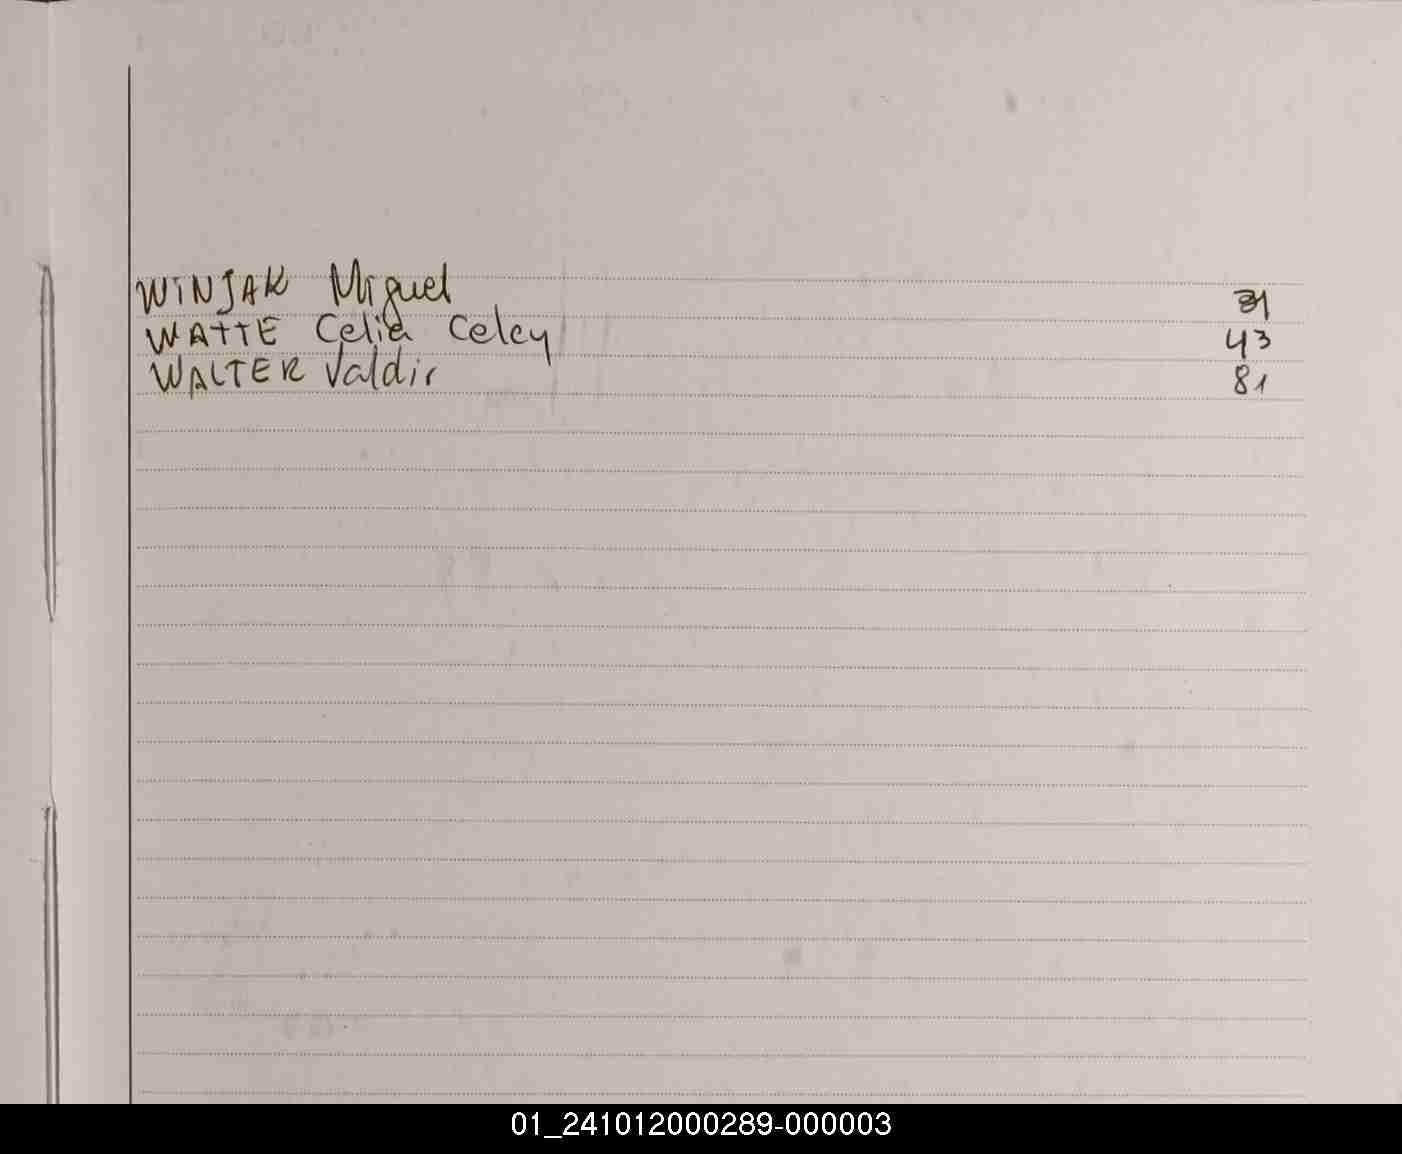 WINJAK Miguel 31
WATTE Celia Celcy 43
WALTER Valdir 81
01_241012000289-000003